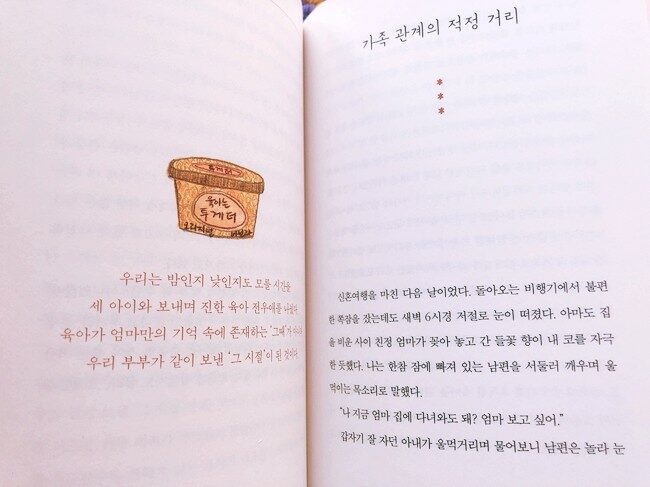 투게더
육아는
투게더
오리지널
우리는 밤인지 낮인지도 모를 시간을
세 아이와 보내며 진한 육아 전우애를
육아가 엄마만의 기억 속에 존재하는 '그때'가
우리 부부가 같이 보낸 '그 시절'이 된 것이다.
가족 관계의 적정 거리
***
신혼여행을 마친 다음 날이었다. 돌아오는 비행기에서 불편
한 쪽잠을 잤는데도 새벽 6시경 저절로 눈이 떠졌다. 아마도 집
을 비운 사이 친정 엄마가 꽂아 놓고 간 들꽃 향이 내 코를 자극
한 듯했다. 나는 한참 잠에 빠져 있는 남편을 서둘러 깨우며 울
먹이는 목소리로 말했다.
"나 지금 엄마 집에 다녀와도 돼? 엄마 보고 싶어."
갑자기 잘 자던 아내가 울먹거리며 물어보니 남편은 놀라 눈